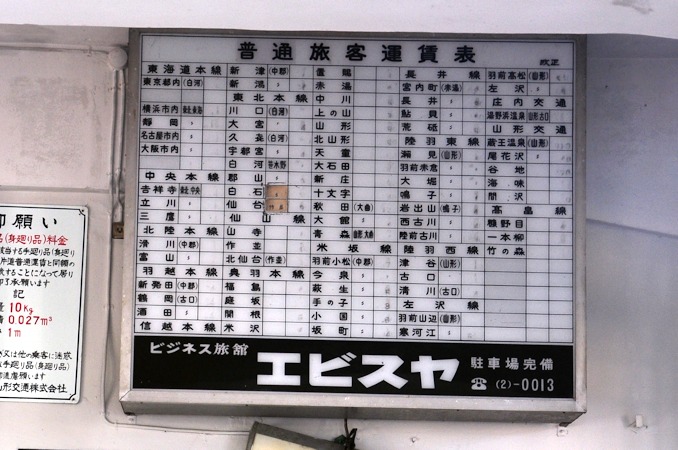 普通旅客運賃表
改正
東海道本線
東京都内(白河)
横浜市内
静岡
名古屋市内
大阪市内
中央本線
吉祥寺
立川
三鷹
北陸本線
滑川(中郡)
富山
羽越本線
新発田(中郡)
鶴岡(古口)
酒田
信越本線
新津(中郡)
新潟
東北本線
川口(白河)
大宮
久喜(白河)
宇都宮
白河
郡山
白石
仙台
仙山線
山寺
作並
北仙台(作並)
奥羽本線
福島
庭坂
関根
米沢
置賜
赤湯
中川
上の山
山形
北山形
天童
大石田
新庄
十文字
秋田(大曲)
大館
青森
米坂線
羽前小松(中郡)
今泉
萩生
手の子
小国
坂町
長井線
宮内町(赤湯)
長井
鮎貝
荒砥
陸羽東線
瀬見(山形)
羽前赤倉
大堀
鳴子
岩出山(鳴子)
西古川
陸前古川
陸羽西線
津谷(山形)
古口
清川(古口)
左沢線
羽前山辺(山形)
寒河江
羽前高松(山形)
左沢
庄内交通
湯野浜温泉
山形交通
蔵王温泉(山形)
尾花沢
谷地
海味
間沢
高畠線
糠野目
一本柳
竹の森
ビジネス旅館
エビスヤ
駐車場完備
☎(2)-0013
御願い
品(身廻り品)料金
記
量10kg
積0.027m³
1m
又は他の乗客に迷惑
山形交通株式会社